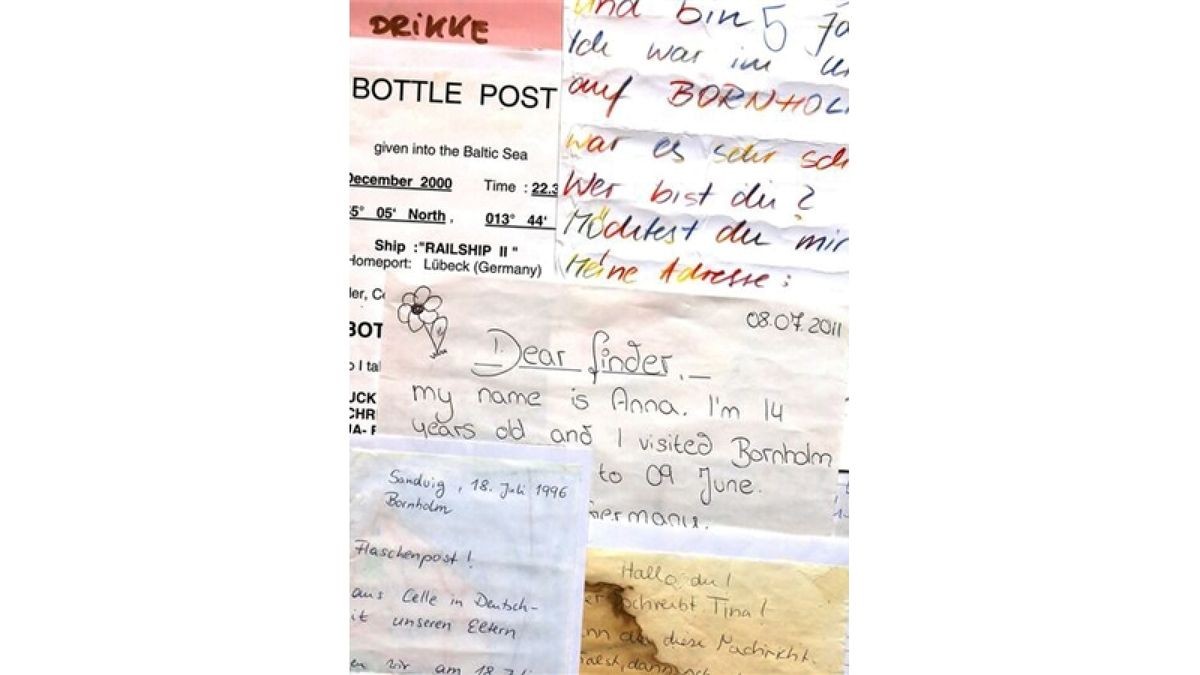 DRIKKE
BOTTLE POST
given into the Baltic Sea
December 2000 Time : 22.3
5° 05' North, 013° 44'
Ship :"RAILSHIP II "
Homeport: Lübeck (Germany)
ler, C
BOT
o I ta
UCK
CHR
IA- F
und bin 5 Ja
Ich war im
auf BORNHOL
war es sehr sch
Wer bist du?
Möchtest du mir
Meine Adresse:
08.07.2011
Dear finder,
my name is Anna. I'm 14
years old and I visited Bornholm
to 09 June.
Germany.
Sandvig, 18. Juli 1996
Bornholm
Flaschenpost!
aus Celle in Deutsch-
it unseren Eltern
en wir am 18 Juli
Hallo du!
er schreibt Tina!
nn du diese Nachricht